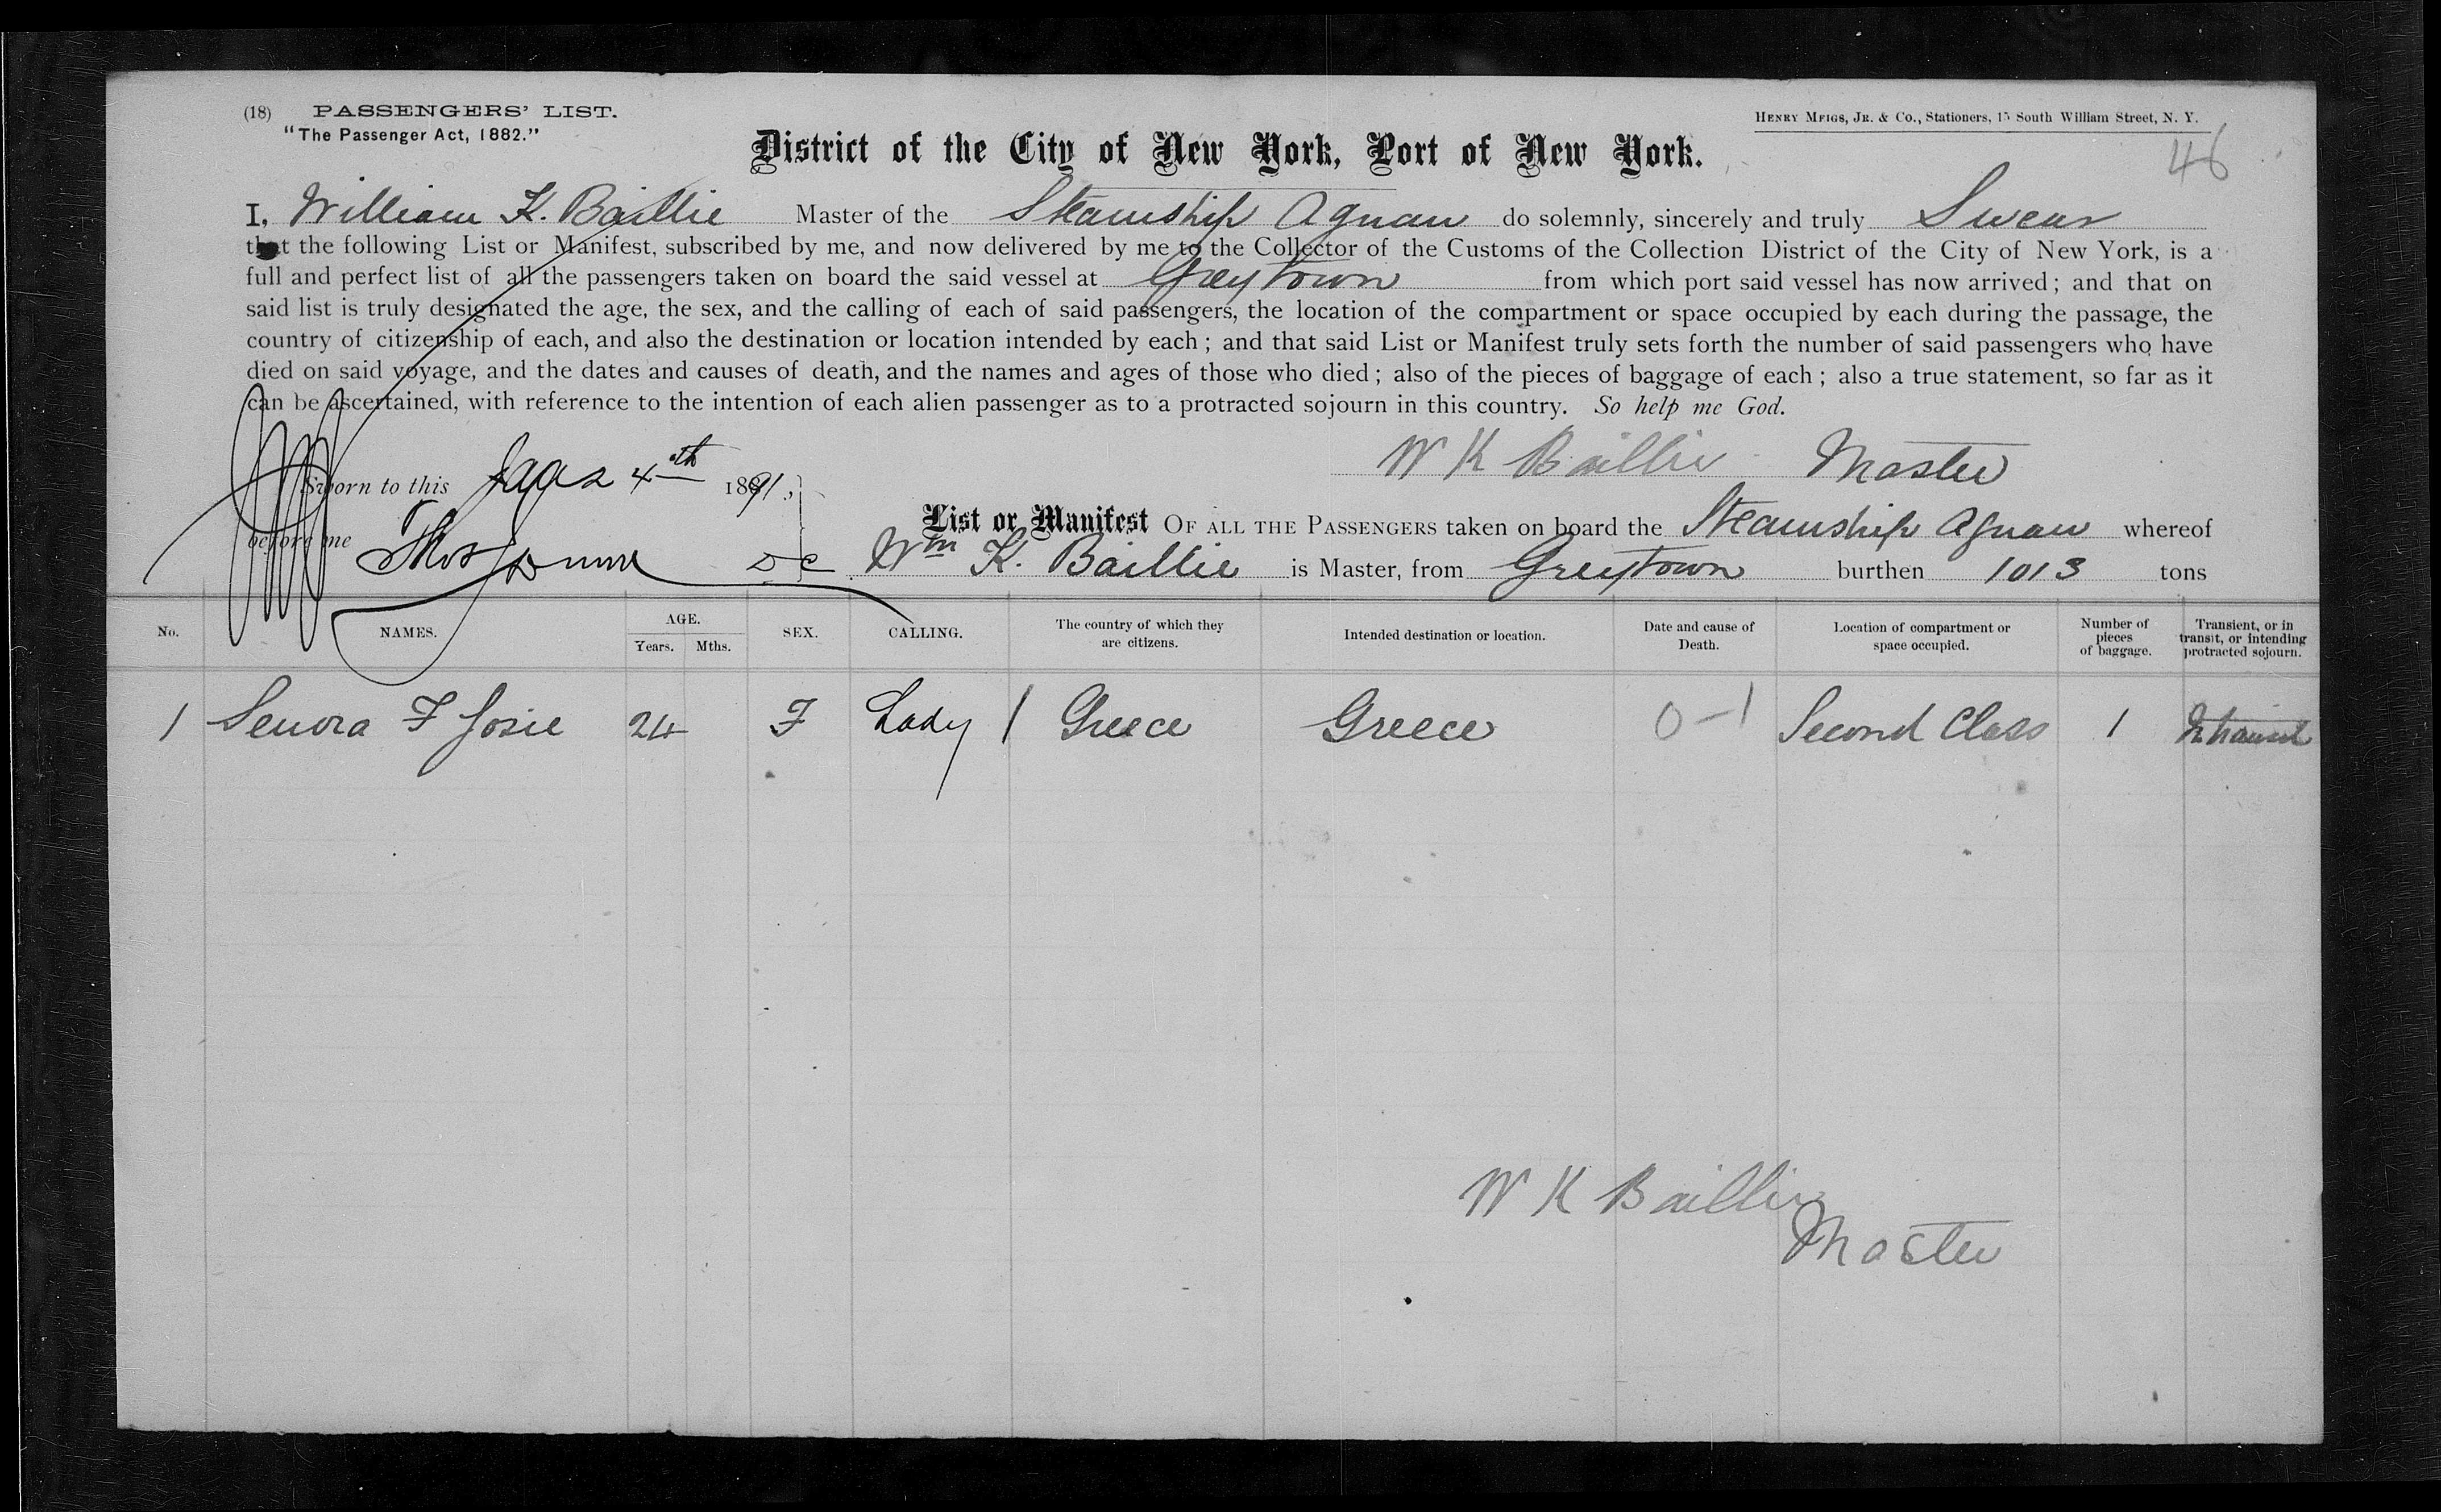 (18) PASSENGERS' LIST.
"The Passenger Act, 1882."
HENRY MEIGS, JR. & Co., Stationers, 15 South William Street, N. Y.
46
District of the City of New York, Port of New York.
I, William K. Baillie Master of the Steamship Aguan do solemnly, sincerely and truly Swear
that the following List or Manifest, subscribed by me, and now delivered by me to the Collector of the Customs of the Collection District of the City of New York, is a
full and perfect list of all the passengers taken on board the said vessel at Greytown from which port said vessel has now arrived; and that on
said list is truly designated the age, the sex, and the calling of each of said passengers, the location of the compartment or space occupied by each during the passage, the
country of citizenship of each, and also the destination or location intended by each; and that said List or Manifest truly sets forth the number of said passengers who have
died on said voyage, and the dates and causes of death, and the names and ages of those who died; also of the pieces of baggage of each; also a true statement, so far as it
can be ascertained, with reference to the intention of each alien passenger as to a protracted sojourn in this country. So help me God.
W K Baillie Master
Sworn to this 4th 1891,
before me Thos Dunn D C
List or Manifest OF ALL THE PASSENGERS taken on board the Steamship Aguan whereof
Wm K. Baillie is Master, from Greytown burthen 1013 tons
No. NAMES. AGE. Years. Mths. SEX. CALLING. The country of which they are citizens. Intended destination or location. Date and cause of Death. Location of compartment or space occupied. Number of pieces of baggage. Transient, or in transit, or intending protracted sojourn.
1 Senora F Josie 24 F Lady / Greece Greece 0-1 Second Class 1 In transit
W K Baillie
Master